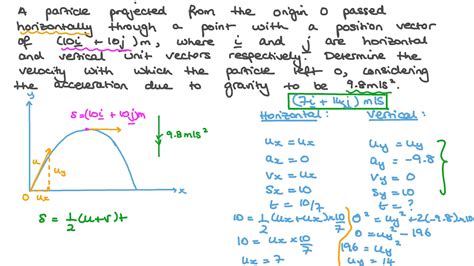 A particle projected from the origin O passed
horizontally through a point with a position vector
of (10i + 10j)m, where i and j are horizontal
and vertical unit vectors respectively. Determine the
velocity with which the particle left O, considering
the acceleration due to gravity to be 9.8m/s²
(7i + 14j) m/s
y
s=(10i+10j)m
9.8m/s²
u
uy
O
ux
x
s = 1/2(u+v)t
Horizontal:
ux = ux
ax = 0
vx = ux
sx = 10
t = 10/7
10 = 1/2(ux+ux)10/7
10 = ux × 10/7
ux = 7
Vertical:
uy = uy
ay = -9.8
vy = 0
sy = 10
t = ?
0² = uy² + 2(-9.8)×10
0 = uy² - 196
196 = uy²
uy = 14